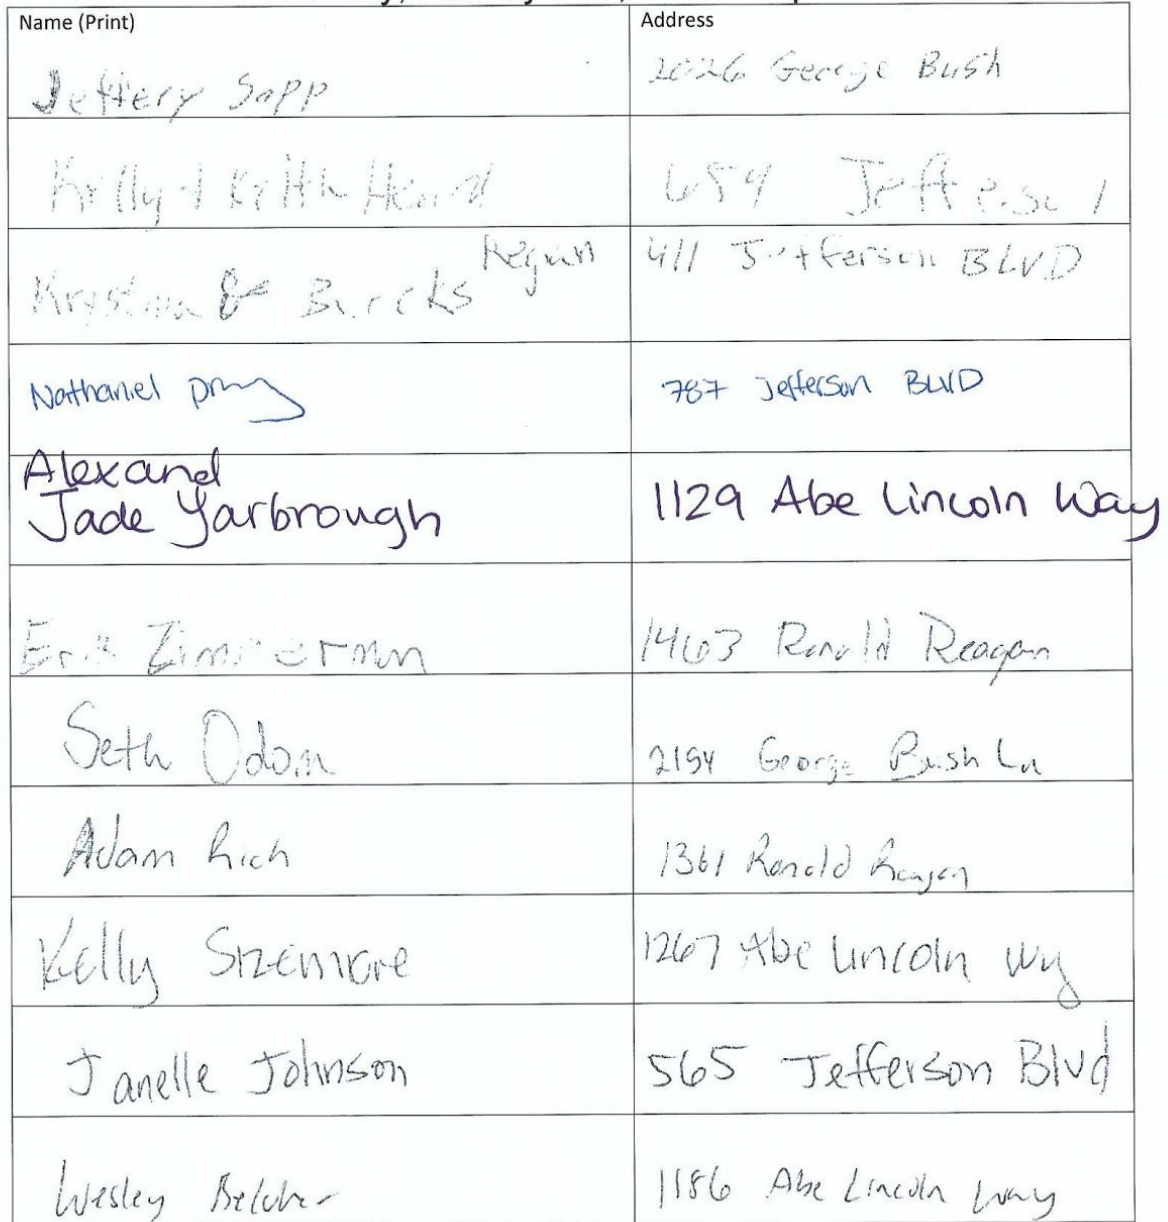 Name (Print) Address
Jeffery Sapp 2026 George Bush
Kelly & Keith Heard 654 Jefferson
Regun
Krystina & Burcks 411 Jefferson BLVD
Nathaniel 787 Jefferson BLVD
Alexand
Jade Yarbrough 1129 Abe Lincoln Way
Erik Zimmerman 1463 Ronald Reagan
Seth Odom 2154 George Bush Ln
Adam Rich 1361 Ronald Reagan
Kelly Sizemore 1267 Abe Lincoln Wy
Janelle Johnson 565 Jefferson Blvd
Wesley Belcher 1186 Abe Lincoln Way